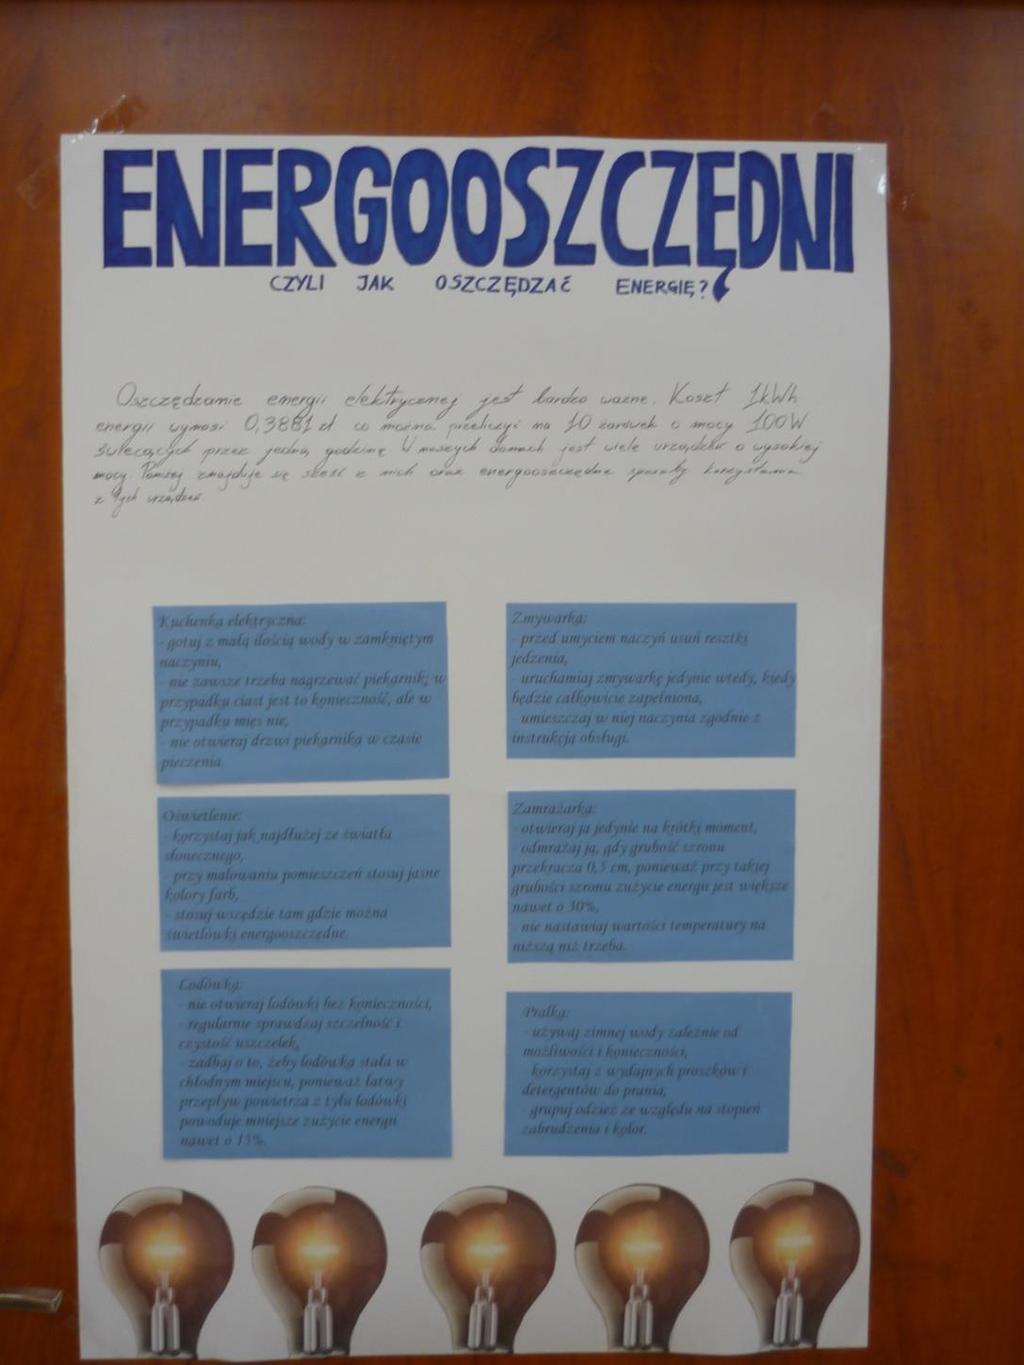 ENERGOOSZCZĘDNI
CZYLI JAK OSZCZĘDZAĆ ENERGIĘ?
Oszczędzanie energii elektrycznej jest bardzo ważne. Koszt 1kWh
energii wynosi 0,3881 zł co można przeliczyć na 10 żarówek o mocy 100W
świecących przez jedną godzinę. W naszych domach jest wiele urządzeń o wysokiej
mocy. Poniżej znajduje się sześć z nich oraz energooszczędne sposoby korzystania
z tych urządzeń.
Kuchenka elektryczna:
- gotuj z małą ilością wody w zamkniętym
naczyniu,
- nie zawsze trzeba nagrzewać piekarnik; w
przypadku ciast jest to konieczność, ale w
przypadku mięs nie,
- nie otwieraj drzwi piekarnika w czasie
pieczenia.
Oświetlenie:
- korzystaj jak najdłużej ze światła
słonecznego,
- przy malowaniu pomieszczeń stosuj jasne
kolory farb,
- stosuj wszędzie tam gdzie można
świetlówki energooszczędne.
Lodówka:
- nie otwieraj lodówki bez konieczności,
- regularnie sprawdzaj szczelność i
czystość uszczelek,
- zadbaj o to, żeby lodówka stała w
chłodnym miejscu, ponieważ łatwy
przepływ powietrza z tyłu lodówki
powoduje mniejsze zużycie energii
nawet o 15%.
Zmywarka:
- przed umyciem naczyń usuń resztki
jedzenia,
- uruchamiaj zmywarkę jedynie wtedy, kiedy
będzie całkowicie zapełniona,
- umieszczaj w niej naczynia zgodnie z
instrukcją obsługi.
Zamrażarka:
- otwieraj ja jedynie na krótki moment,
- odmrażaj ją, gdy grubość szronu
przekracza 0,5 cm, ponieważ przy takiej
grubości szronu zużycie energii jest większe
nawet o 30%,
- nie nastawiaj wartości temperatury na
niższą niż trzeba.
Pralka:
- używaj zimnej wody zależnie od
możliwości i konieczności,
- korzystaj z wydajnych proszków i
detergentów do prania,
- grupuj odzież ze względu na stopień
zabrudzenia i kolor.